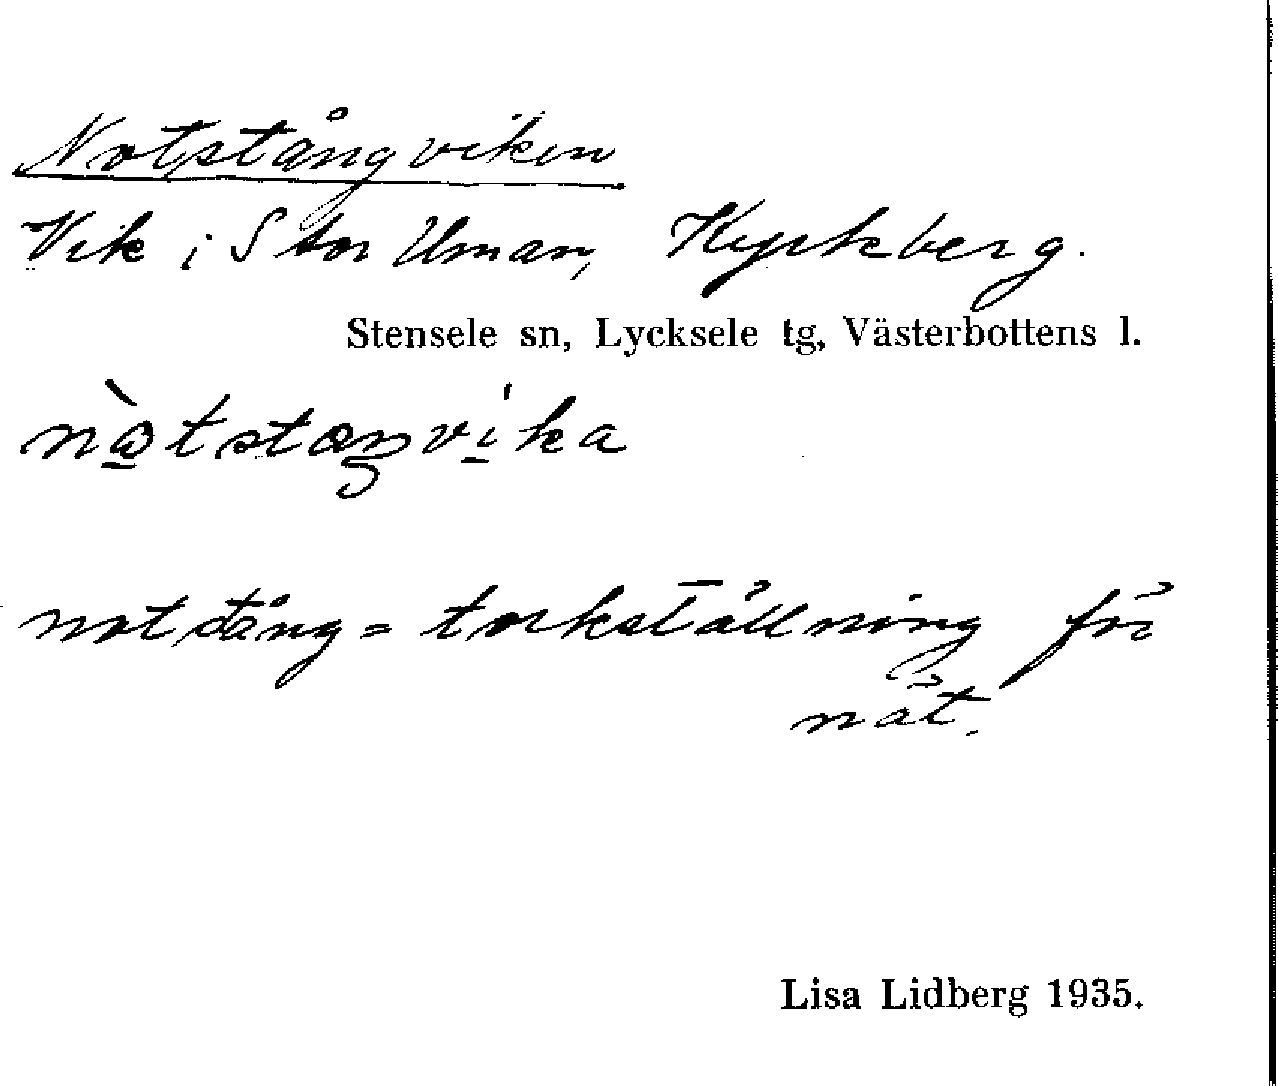 Notstångviken
Vik i Stor Uman, Kyrkberg.
Stensele sn, Lycksele tg, Västerbottens l.
nὼ̲tstæŋvi̲̍ka
notstång = torkställning för
nät.
Lisa Lidberg 1935.